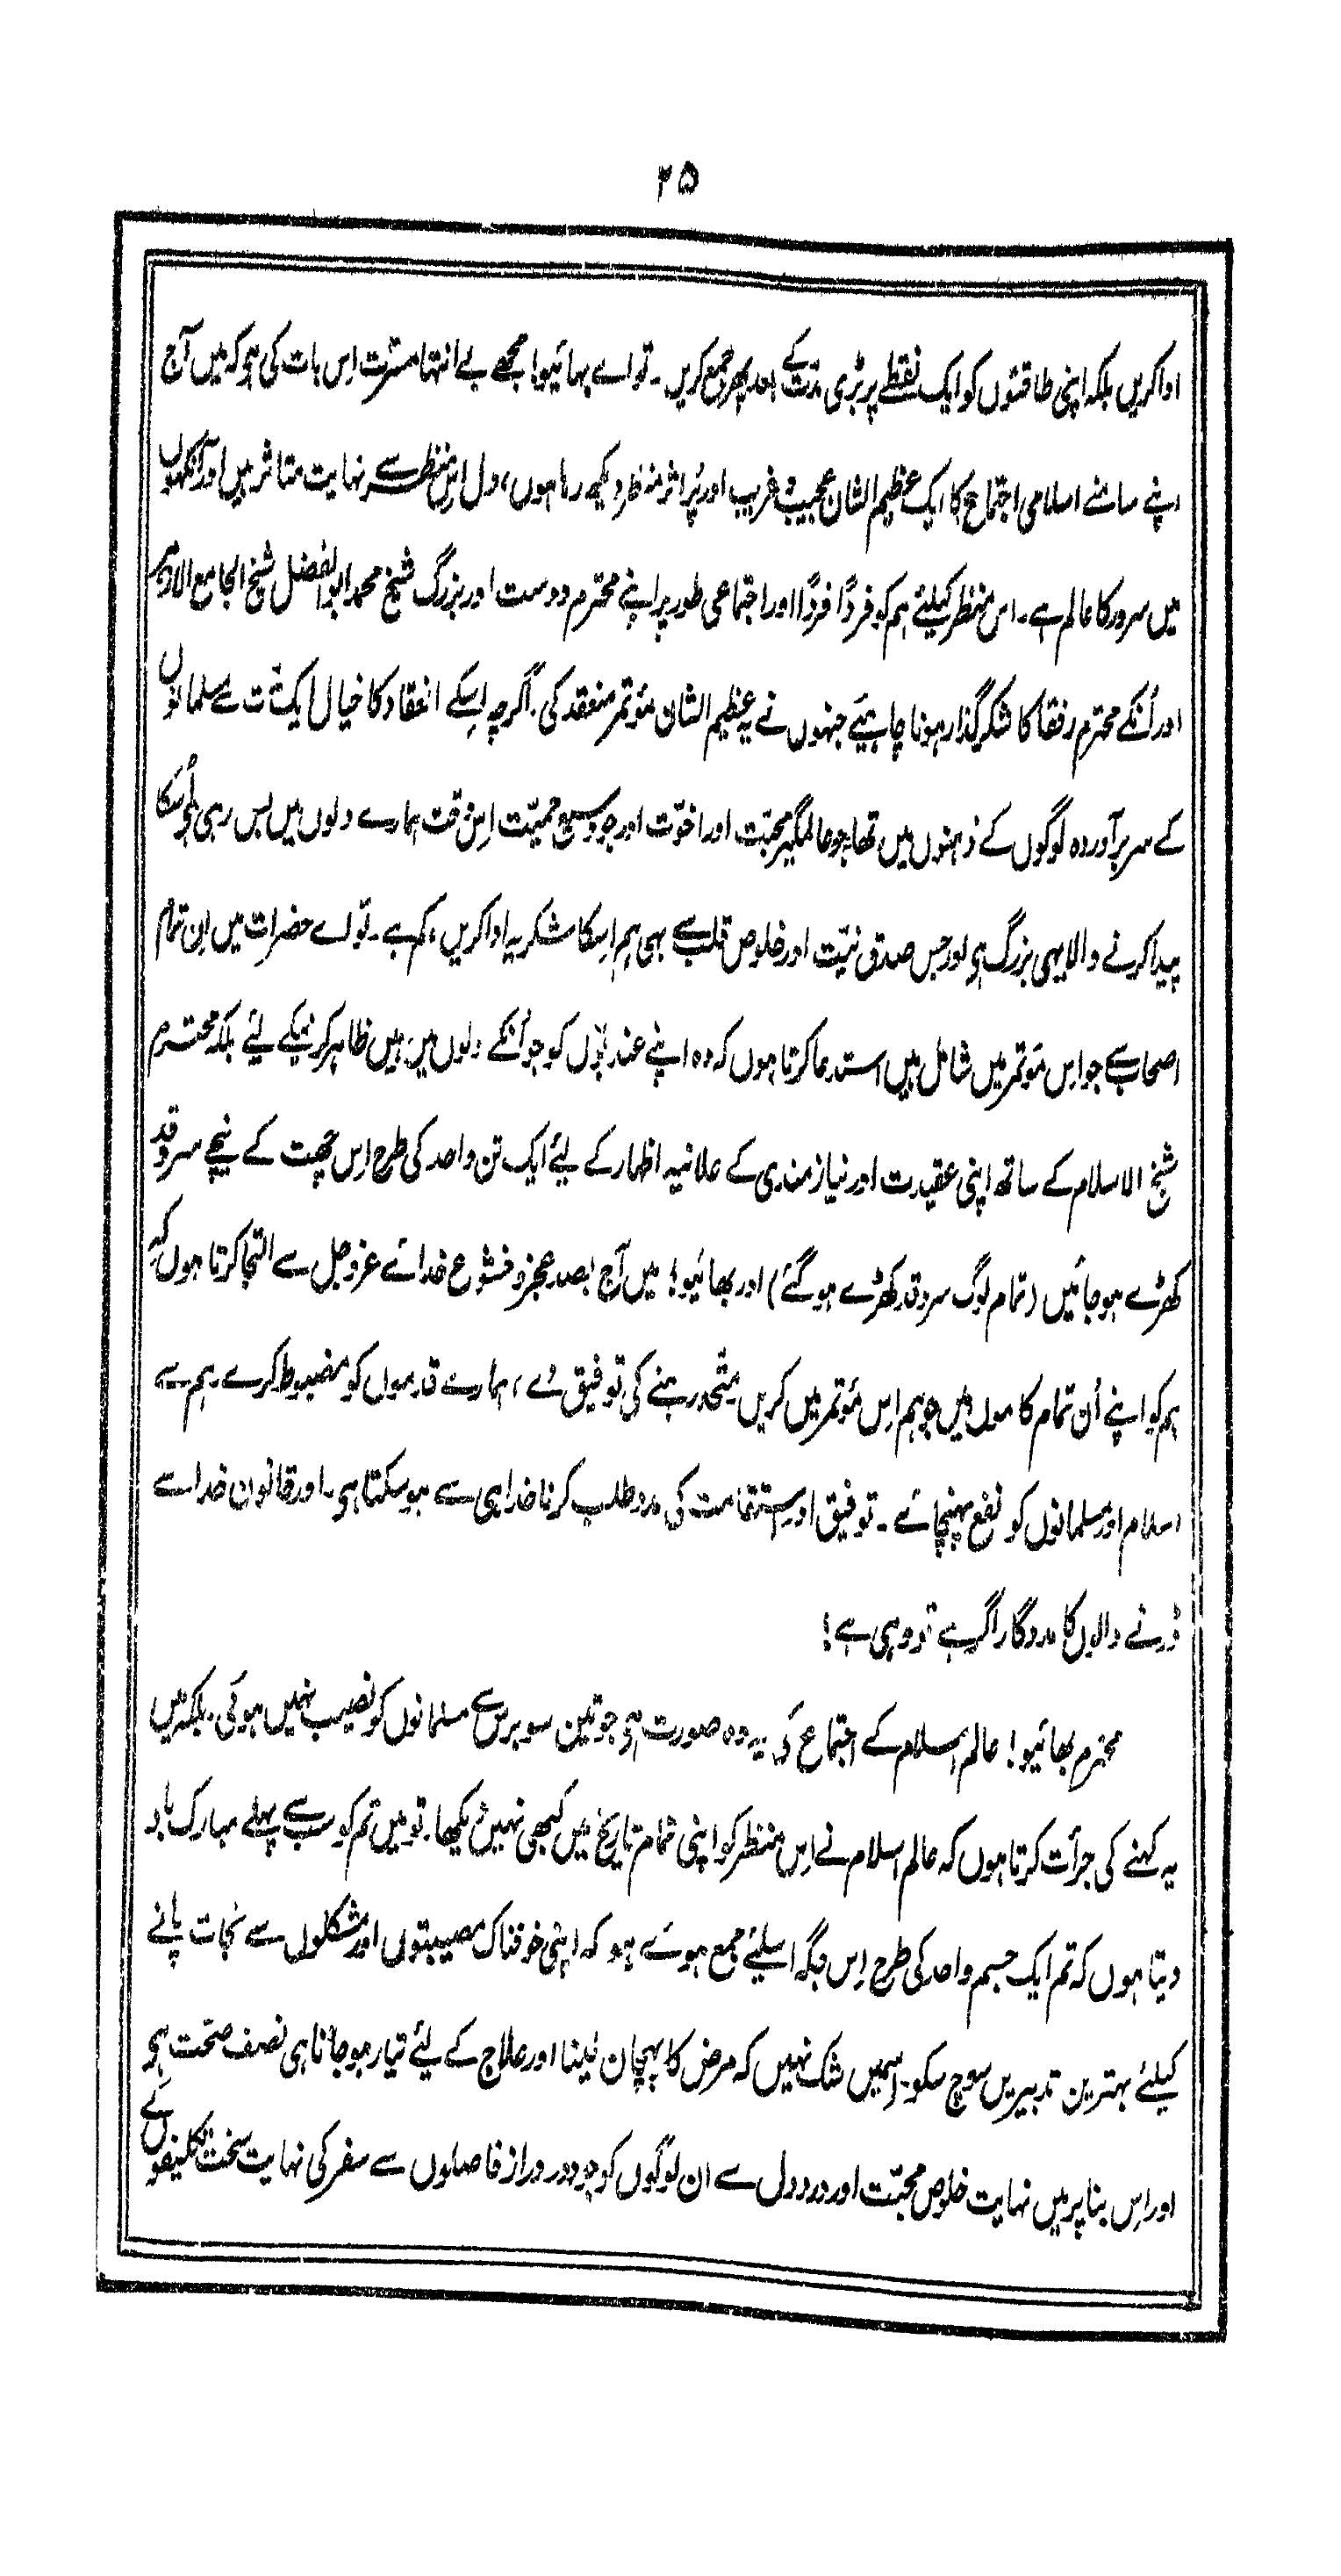 ۲۵
ادا کریں بلکہ اپنی طاقتوں کو ایک نقطے پر بڑی مدّت کے بعد پھر جمع کریں۔ تو اے بہائیو! مجھے بے انتہا مسرّت اِس بات کی ہی کہ میں آج
اپنے سامنے اسلامی اجتماع کا ایک عظیم الشان عجیب و غریب اور پُر اثر منظر دیکھ رہا ہوں، دل اِس منظر سے نہایت متاثر ہیں اور آنکھوں
میں سرور کا عالم ہے۔ اس منظر کیلئے ہم کو فرداً فرداً اور اجتماعی طور پر اپنے محترم دوست اور بزرگ شیخ محمد ابو الفضل شیخ الجامع الازہر
اور اُنکے محترم رفقا کا شکر گذار ہونا چاہیئے جنہوں نے یہ عظیم الشان مؤتمر منعقد کی۔ اگرچہ اِسکے انعقاد کا خیال ایک مدّت سے مسلمانوں
کے سر برآوردہ لوگوں کے ذہنوں میں تھا جو عالمگیر محبّت اور اخوّت اور جو وسیع حمیّت اِس وقت ہمارے دلوں میں بس رہی ہی اُسکا
پیدا کرنے والا یہی بزرگ ہی اور جس صدق نیّت اور خلوص قلب سے بھی ہم اِسکا شکریہ ادا کریں، کم ہے۔ تو اے حضرات میں اِن تمام
اصحاب سے جو اِس مؤتمر میں شامل ہیں استدعا کرتا ہوں کہ وہ اپنے عندیوں کو جو اُنکے دلوں میں ہیں ظاہر کرنیکے لیئے بلکہ محترم
شیخ الاسلام کے ساتھ اپنی عقیدت اور نیازمندی کے علانیہ اظہار کے لیئے ایک تن واحد کی طرح اِس چھت کے نیچے سروقد
کھڑے ہو جائیں (تمام لوگ سروقد کھڑے ہو گئے) اور بھائیو! میں آج بصد عجز و خشوع خدائے عزوجل سے التجا کرتا ہوں کہ
ہم کو اپنے اُن تمام کاموں میں جو ہم اِس مؤتمر میں کریں متّحد رہنے کی توفیق دے، ہمارے قدموں کو مضبوط کرے ہم سے
اسلام اور مسلمانوں کو نفع پہنچائے۔ توفیق اور استقامت کی مدد طلب کرنا خدا ہی سے ہو سکتا ہی۔ اور قانون خدا سے
ڈرنے والوں کا مددگار اگر ہے تو وہی ہے!
محترم بھائیو! عالم اسلام کے اجتماع کی یہ وہ صورت ہی جو تین سو برس سے مسلمانوں کو نصیب نہیں ہوئی۔ بلکہ میں
یہ کہنے کی جرأت کرتا ہوں کہ عالم اسلام نے اِس منظر کو اپنی تمام تاریخ میں کبھی نہیں دیکھا۔ تو میں تم کو سب سے پہلے مبارک باد
دیتا ہوں کہ تم ایک جسم واحد کی طرح اِس جگہ اسلئے جمع ہوئے ہو کہ اپنی خوفناک مصیبتوں اور مشکلوں سے نجات پانے
کیلئے بہترین تدبیریں سوچ سکو۔ اِسمیں شک نہیں کہ مرض کا پہچان لینا اور علاج کے لیئے تیار ہو جانا ہی نصف صحّت ہی
اور اِس بنا پر میں نہایت خلوص محبّت اور درد دل سے ان لوگوں کو جو دور دراز فاصلوں سے سفر کی نہایت سخت تکلیفوں کے